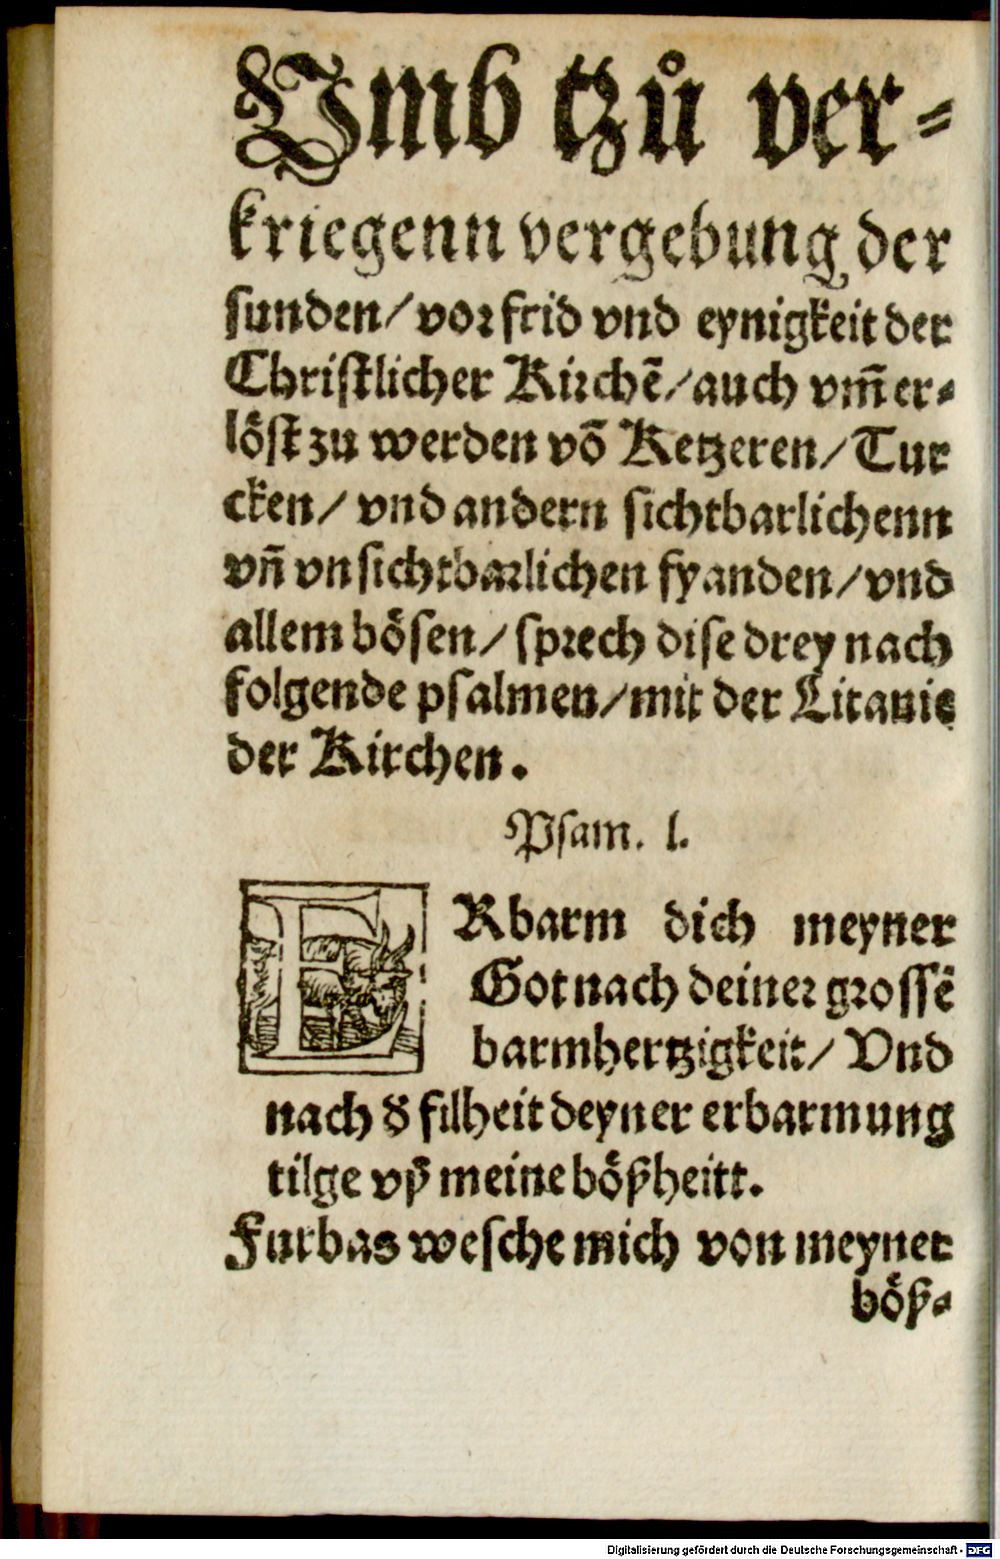 Vmb tzů ver⸗
kriegenn vergebung der
sunden/ vor frid vnd eynigkeit der
Christlicher Kirchẽ/ auch vm̃ er⸗
löst zu werden võ Ketzeren/ Tur
cken/ vnd andern sichtbarlichenn
vñ vnsichtbarlichen fyanden/ vnd
allem bösen/ sprech dise drey nach
folgende psalmen/ mit der Litanie
der Kirchen.
Psam. l.
ERbarm dich meyner
Got nach deiner grossẽ
barmhertzigkeit/ Vnd
nach d̕ filheit deyner erbarmung
tilge vß meine bößheitt.
Furbas wesche mich von meyner
böß⸗
Digitalisierung gefördert durch die Deutsche Forschungsgemeinschaft - DFG